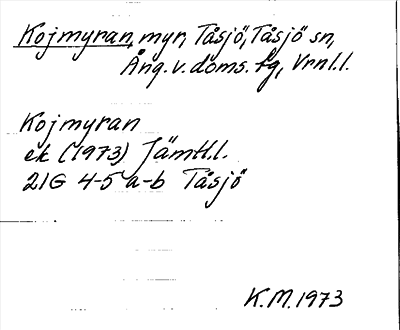 Kojmyran, myr, Tåsjö, Tåsjö sn,
Ång. v. doms. fg, Vrnl.l.
Kojmyran
ek (1973) Jämtl.l.
21G 4-5 a-b Tåsjö
K.M. 1973